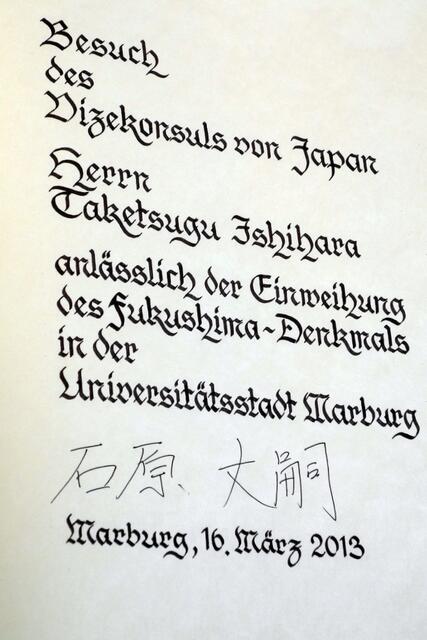 Besuch
des
Vizekonsuls von Japan
Herrn
Taketsugu Ishihara
anlässlich der Einweihung
des Fukushima-Denkmals
in der
Universitätsstadt Marburg
石原 丈嗣
Marburg, 16. März 2013